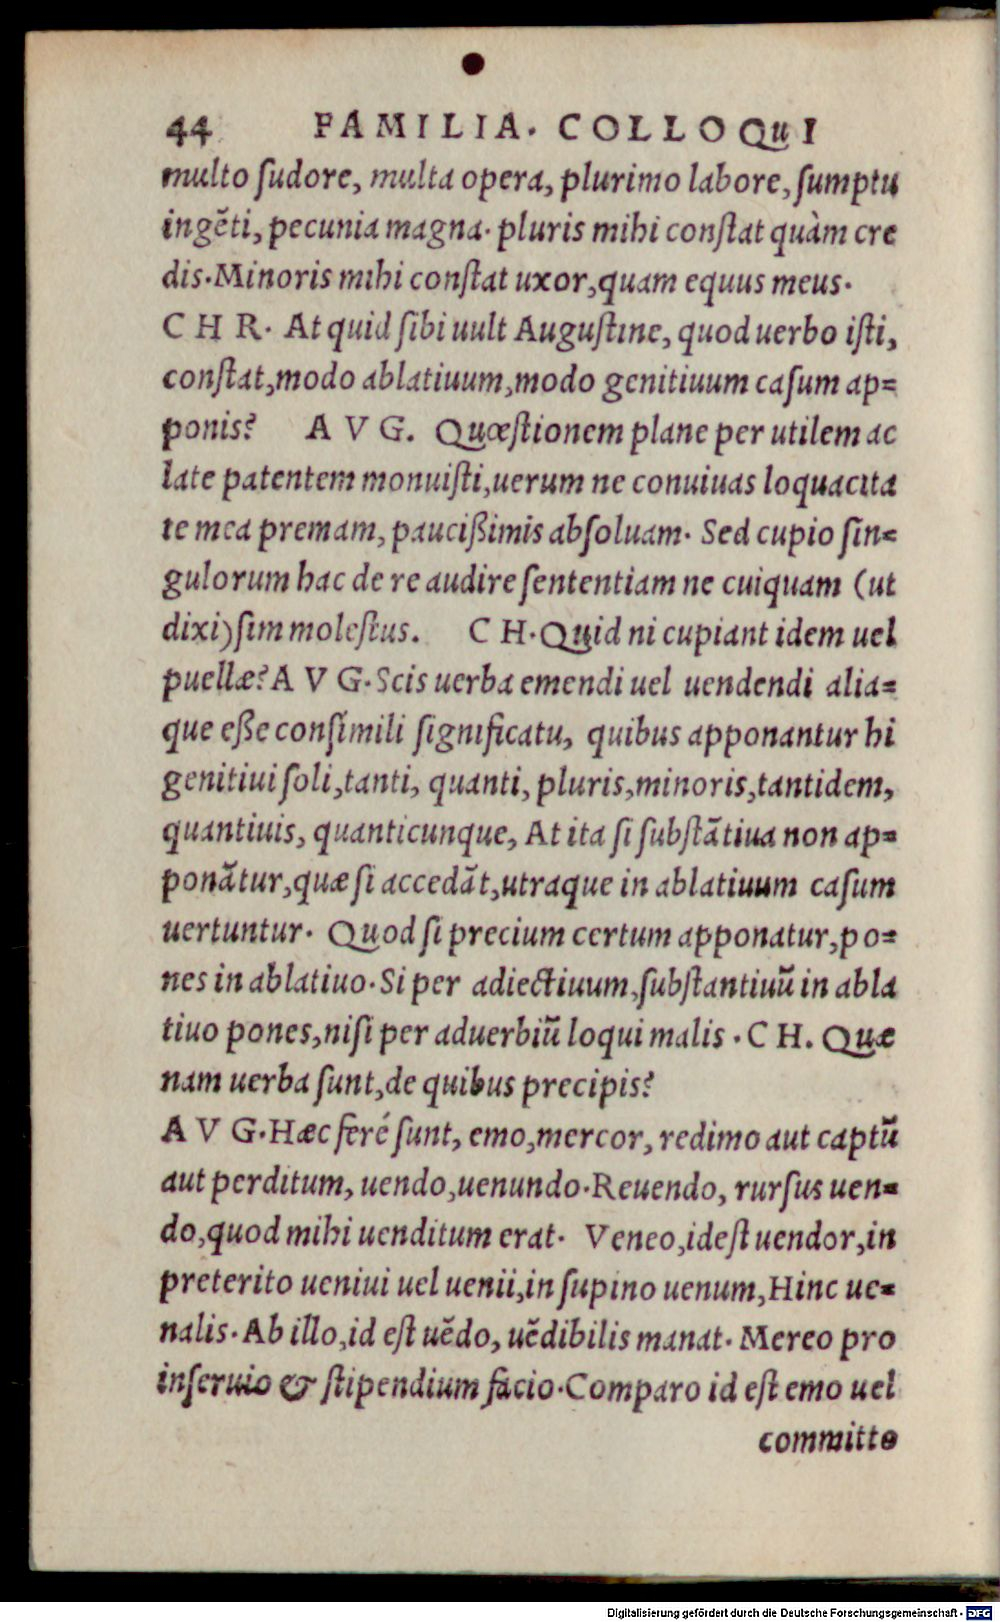 44 FAMILIA. COLLOQuI
multo ſudore, multa opera, plurimo labore, ſumptu
ingẽti, pecunia magna. pluris mihi conſtat quàm cre
dis. Minoris mihi conſtat uxor, quam equus meus.
C H R. At quid ſibi uult Auguſtine, quod uerbo iſti,
conſtat, modo ablatiuum, modo genitiuum caſum ap=
ponis? A V G. Quœſtionem plane per utilem ac
late patentem monuiſti, uerum ne conuiuas loquacita
te mea premam, pauciſsimis abſoluam. Sed cupio ſin=
gulorum hac de re audire ſententiam ne cuiquam (ut
dixi) ſim moleſtus. C H. Quid ni cupiant idem uel
puellæ? A V G. Scis uerba emendi uel uendendi alia=
que eſse conſimili ſignificatu, quibus apponantur hi
genitiui ſoli, tanti, quanti, pluris, minoris, tantidem,
quantiuis, quanticunque, At ita ſi ſubſtãtiua non ap=
ponãtur, quæ ſi accedãt, utraque in ablatiuum caſum
uertuntur. Quod ſi precium certum apponatur, po=
nes in ablatiuo. Si per adiectiuum, ſubſtantiuũ in abla
tiuo pones, niſi per aduerbiũ loqui malis. C H. Quæ
nam uerba ſunt, de quibus precipis?
A V G. Hæc feré ſunt, emo, mercor, redimo aut captũ
aut perditum, uendo, uenundo. Reuendo, rurſus uen=
do, quod mihi uenditum erat. Veneo, ideſt uendor, in
preterito ueniui uel uenii, in ſupino uenum, Hinc ue=
nalis. Ab illo, id eſt uẽdo, uẽdibilis manat. Mereo pro
inſeruio & ſtipendium facio. Comparo id eſt emo uel
committo
Digitalisierung gefördert durch die Deutsche Forschungsgemeinschaft - DFG